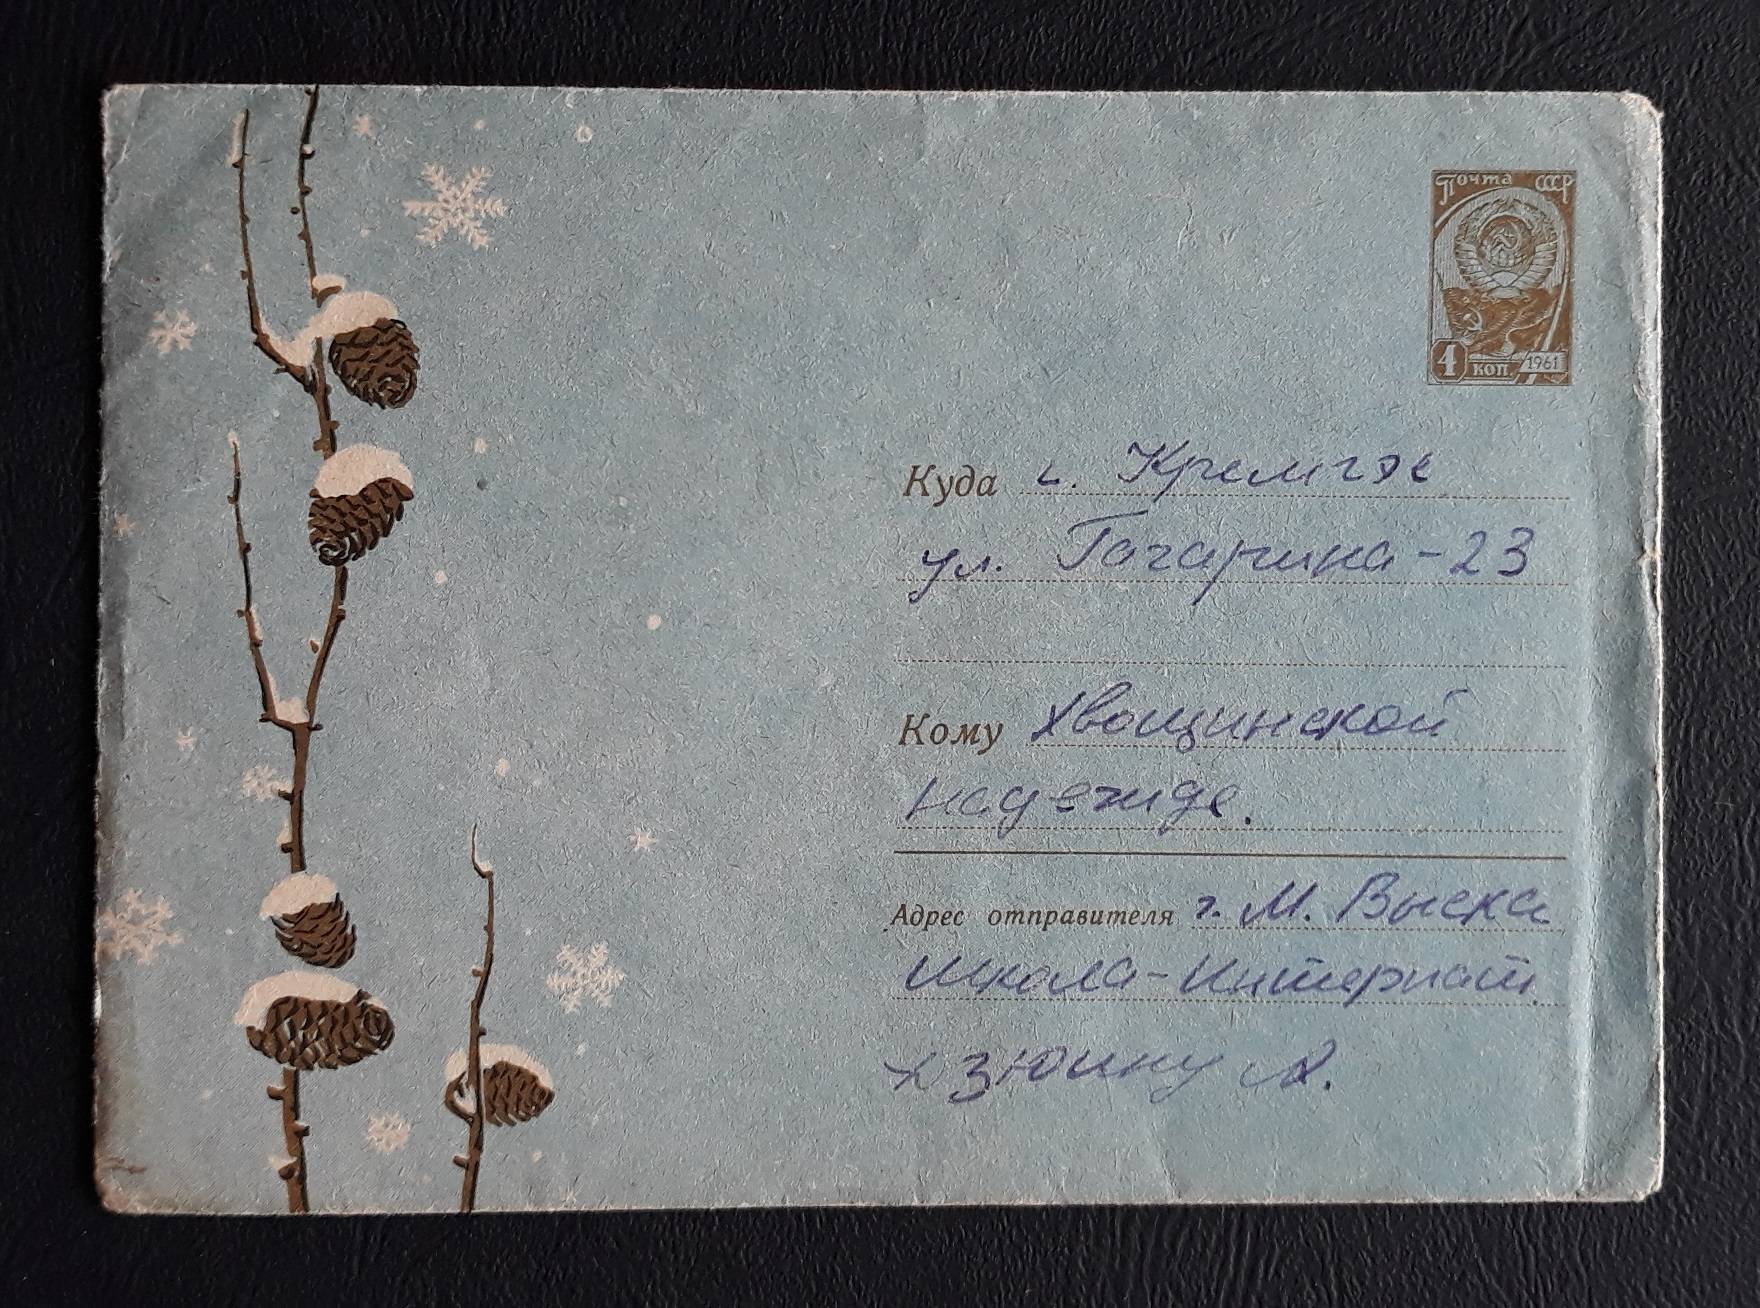 Почта СССР
4 коп. 1961
Куда г. Кремгэс
ул. Гагарина-23
Кому Хвощинской
Надежде.
Адрес отправителя г. М. Выска
Школа-Интернат
А.